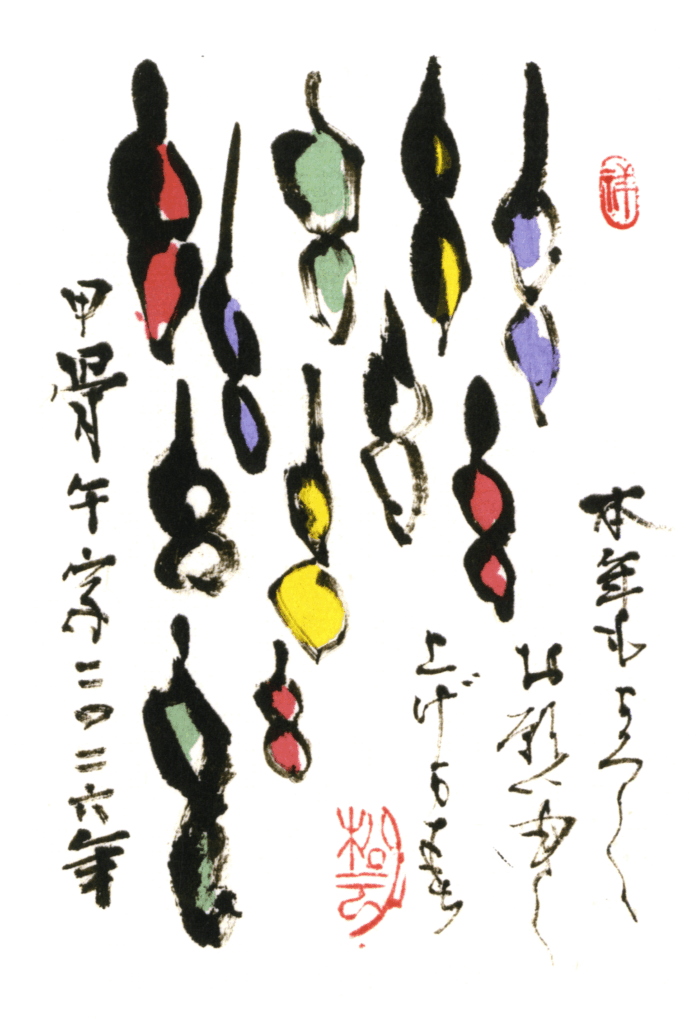 祥
本年もよろしく
お願い申し
上げます
甲骨午字二〇二六年